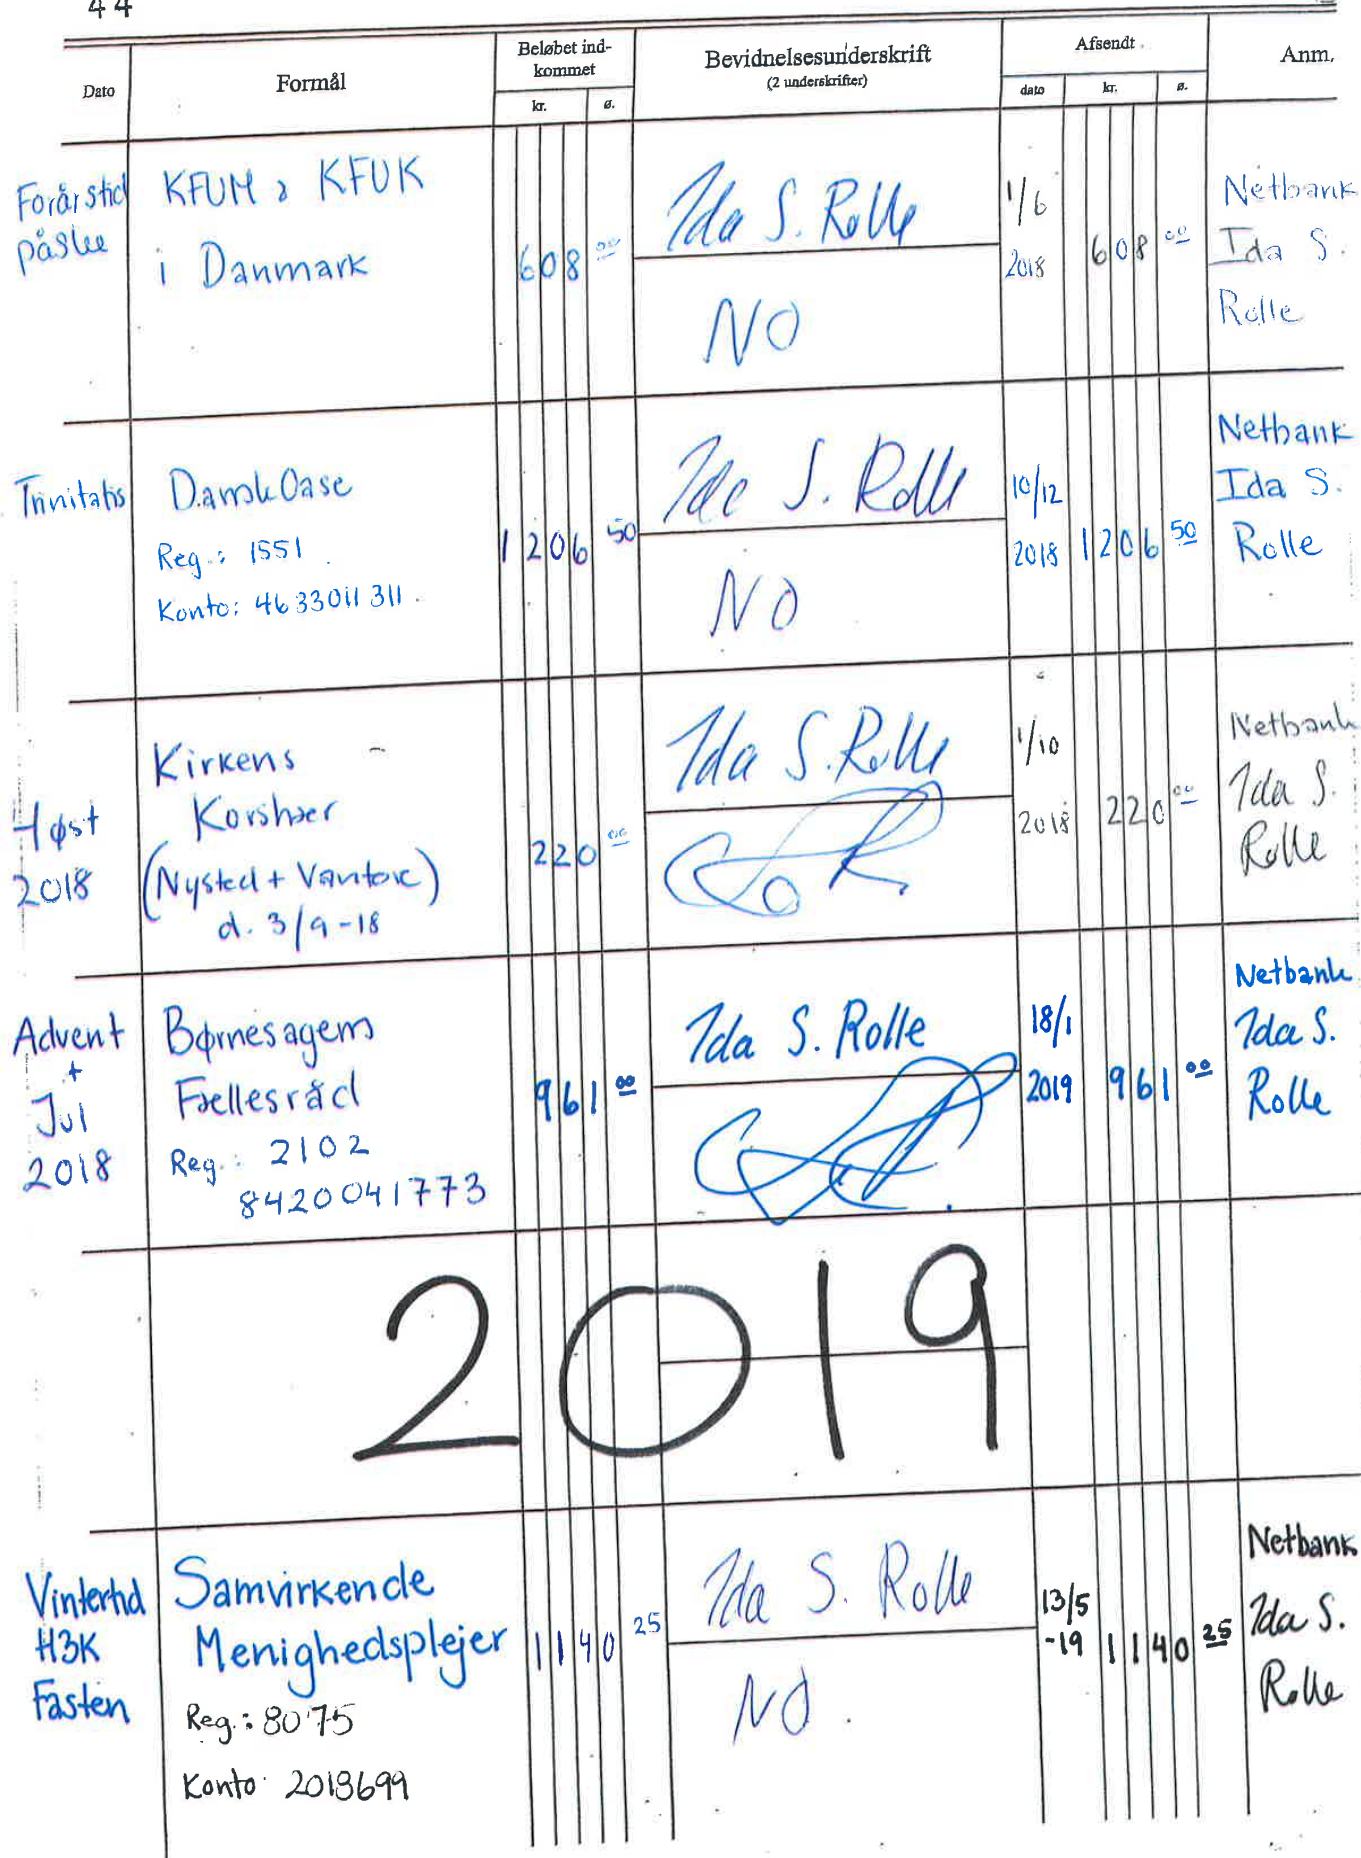 44
Dato
Formål
Beløbet ind-
kommet
kr.
ø.
Bevidnelsesunderskrift
(2 underskrifter)
Afsendt
dato
kr.
ø.
Anm.
Forårstid
påske
KFUM & KFUK
i Danmark
608 00
Ida S. Rolle
NO
1/6
2018
608 00
Netbank
Ida S.
Rolle
Trinitatis
Dansk Oase
Reg.: 1551
Konto: 4633011311
1206 50
Ida S. Rolle
NO
10/12
2018
1206 50
Netbank
Ida S.
Rolle
Høst
2018
Kirkens
Korshær
(Nysted + Vantore)
d. 3/9-18
220 00
Ida S. Rolle
1/10
2018
220 00
Netbank
Ida S.
Rolle
Advent
+
Jul
2018
Børnesagens
Fællesråd
Reg.: 2102
8420041773
961 00
Ida S. Rolle
18/1
2019
961 00
Netbank
Ida S.
Rolle
2019
Vintertid
H3K
Fasten
Samvirkende
Menighedsplejer
Reg.: 8075
Konto 2018699
1140 25
Ida S. Rolle
NO.
13/5
-19
1140 25
Netbank
Ida S.
Rolle